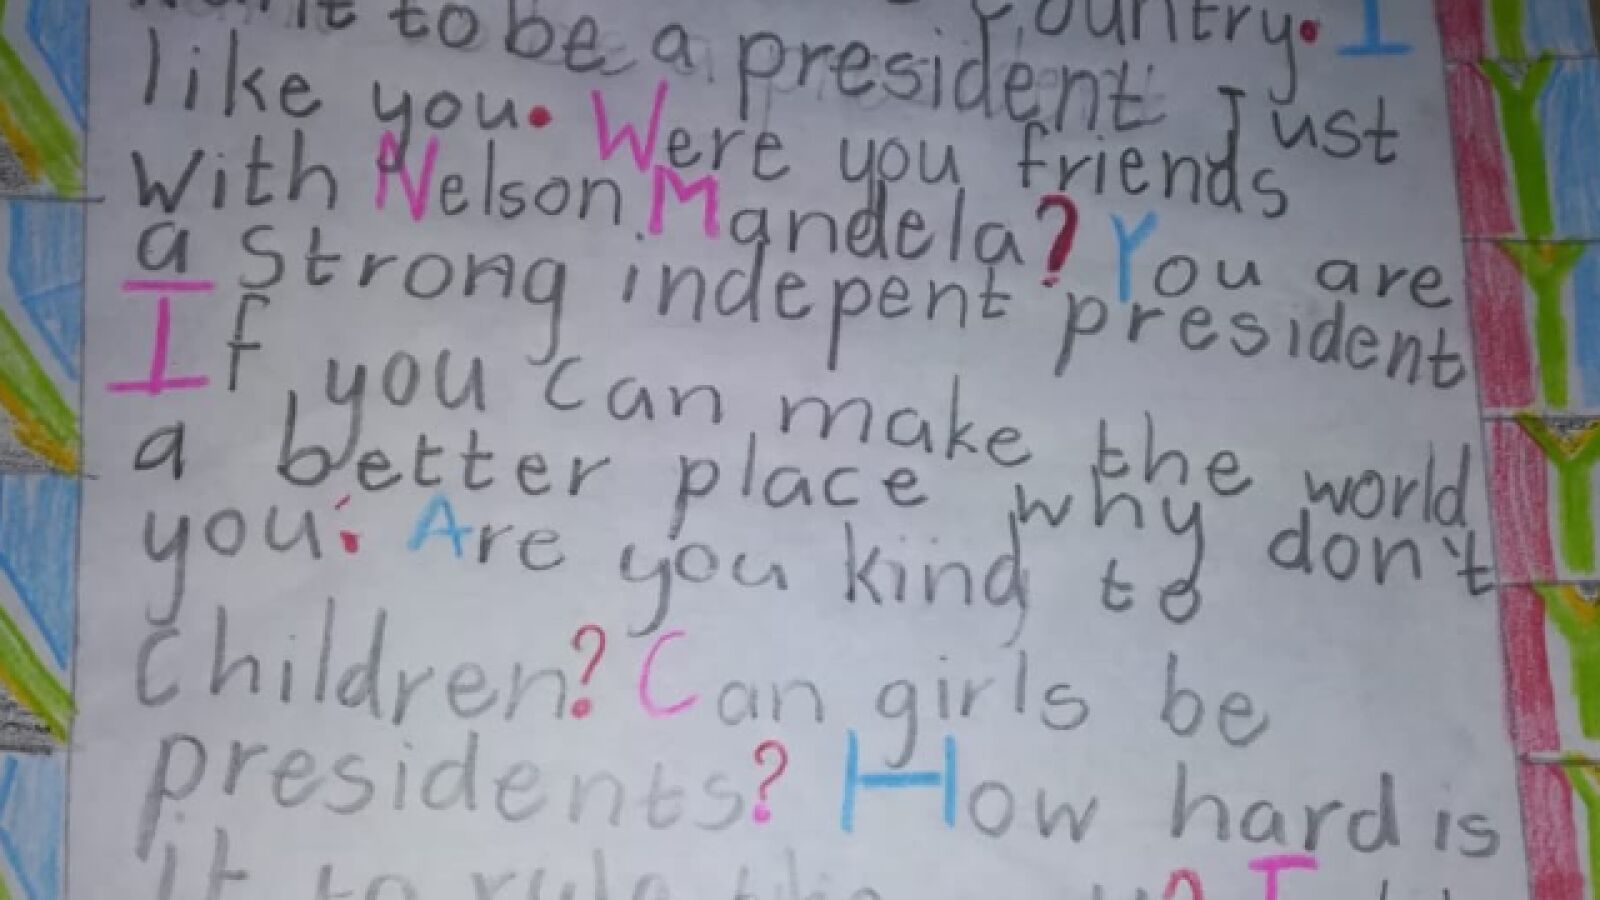 to be a president Country. I
like you. Were you friends Just
with Nelson Mandela? You are
a strong indepent president
If you can make the world
a better place why don't
you. Are you kind to
children? Can girls be
presidents? How hard is
it to rule the